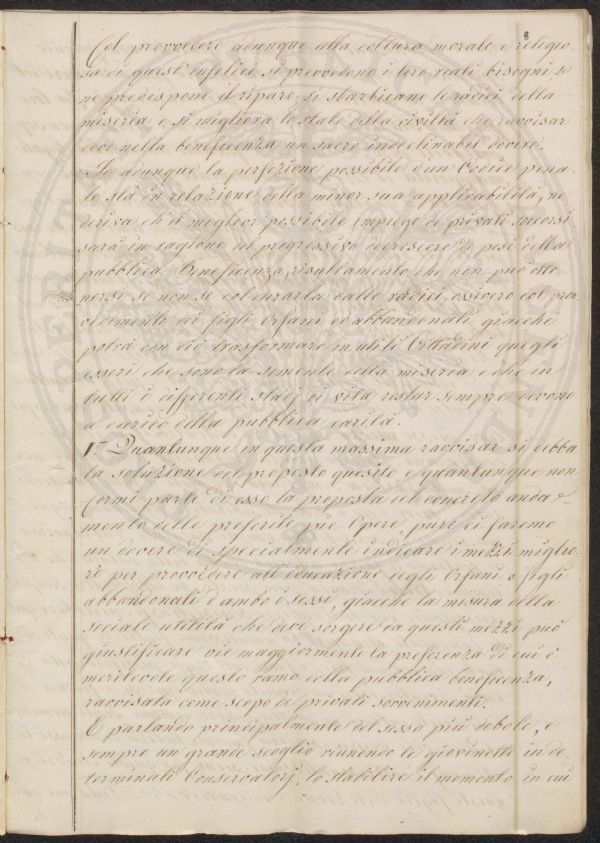 8
Col provvedere adunque alla coltura morale e religio
sa di quest' infelici si prevvedono i loro reali bisogni se
ne predispone il riparo, si sbarbicano le radici della
miseria e si migliora lo stato della civiltà che ravvisar
deve nella beneficenza un sacro indeclinabil dovere.
Se adunque la perfezione possibile d'un Codice pena
le stà in relazione della minor sua applicabilità, ne
deriva ch' il miglior possibile impiego de privati soccorsi
sarà in ragione del progressivo decrescere de pesi della
pubblica Beneficenza, risultamento che non può otte
nersi se non se col curarla dalle radici, ossivero col prov
vedimento dei figli Orfani ed abbandonati, giacchè
potrà con ciò trasformare in utili Cittadini quegli
esseri che sono la semente della miseria e che in
tutti i differenti stadj di vita restar sempre devono
a carico della pubblica carità.
Quantunque in questa massima ravvisar si debba
la soluzione del proposto quesito e quantunque non
formi parte di esso la proposta del concreto anda
mento delle preferite pie Opere, pure ci faremo
un dovere di specialmente indicare i mezzi miglio
ri per provvedere all' educazione degli Orfani o figli
abbandonati d' ambo i sessi, giacchè la misura della
sociale utilità che deve sorgere da questi mezzi può
giustificare vie maggiormente la preferenza di cui è
meritevole questo ramo della pubblica beneficenza,
ravvisata come scopo de privati sovvenimenti.
E parlando principalmente del sesso più debole, è
sempre un grande scoglio riunendo le giovinette in de
terminati Conservatorj, lo stabilire il momento in cui